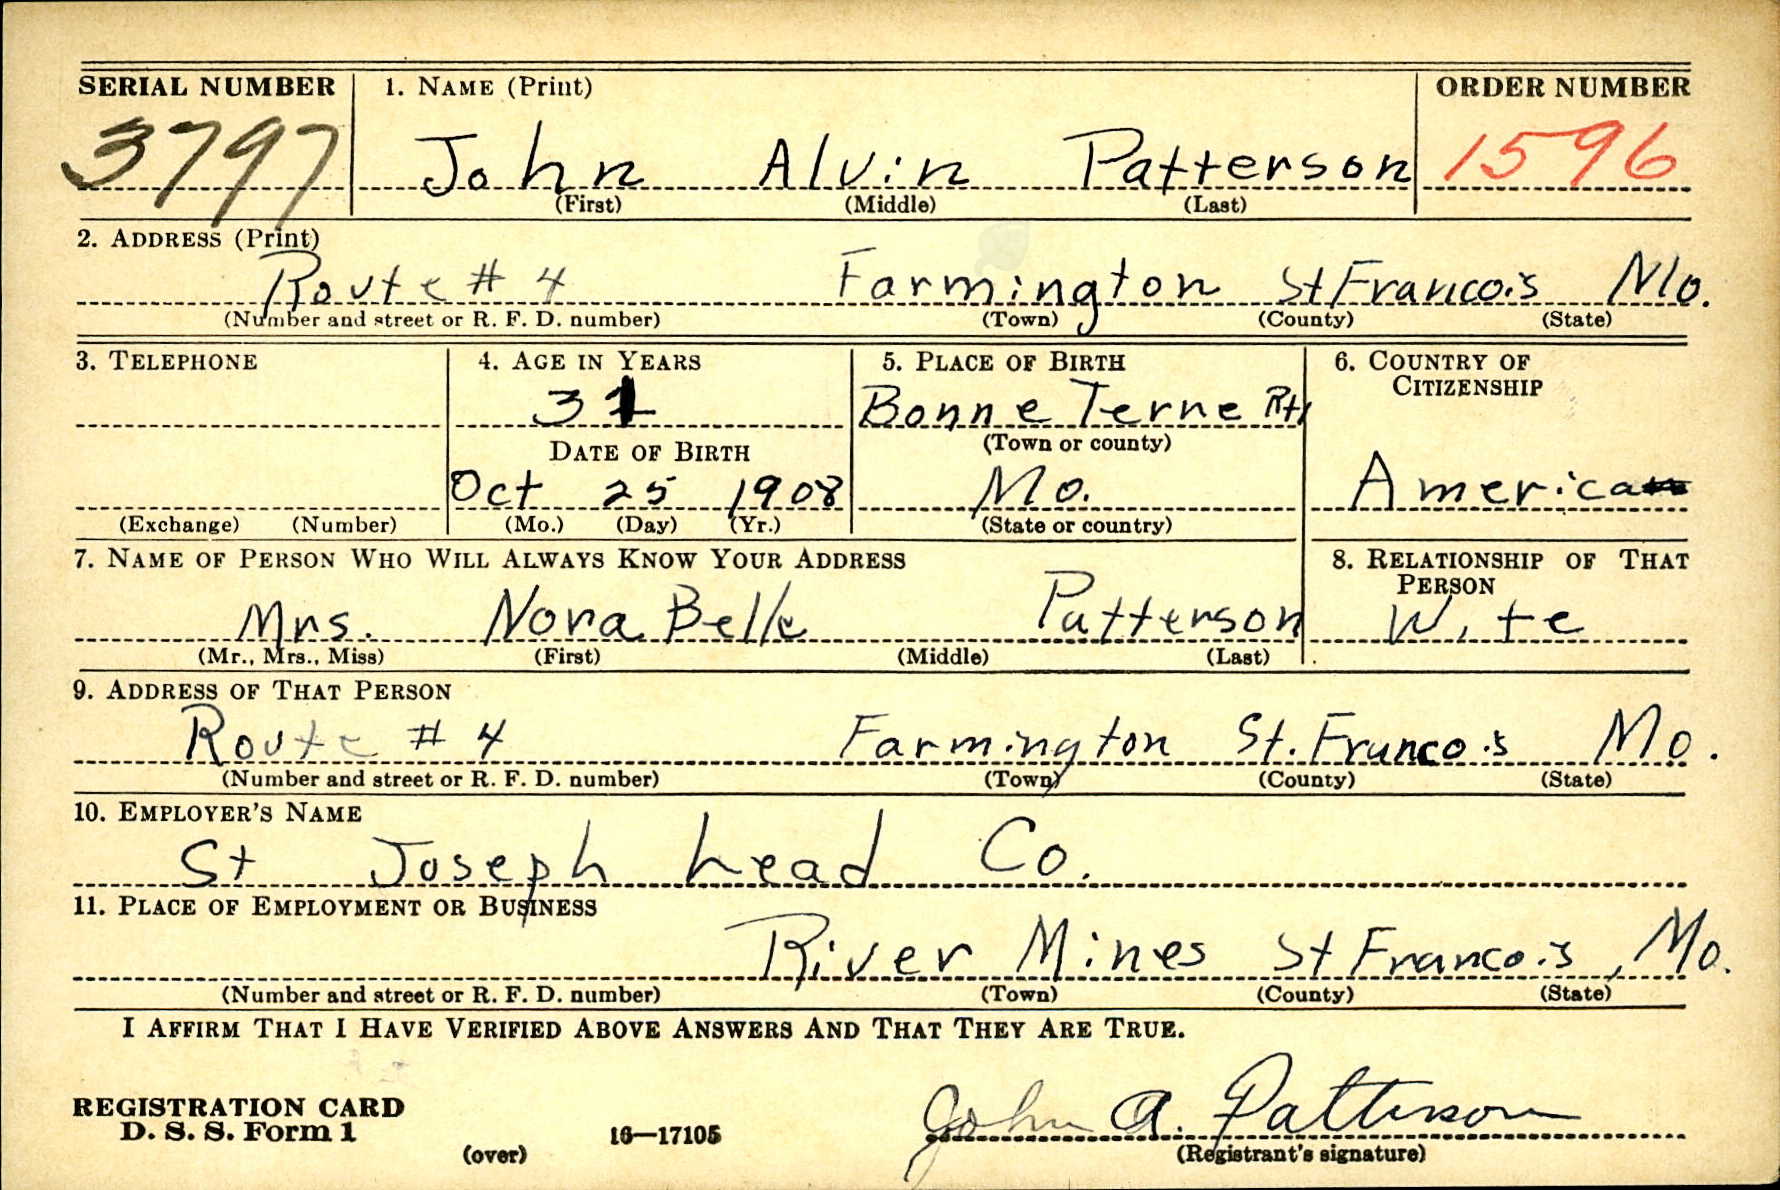 SERIAL NUMBER 1. NAME (Print) ORDER NUMBER
3797 John Alvin Patterson 1596
(First) (Middle) (Last)
2. ADDRESS (Print)
Route # 4 Farmington St Francois Mo.
(Number and street or R. F. D. number) (Town) (County) (State)
3. TELEPHONE 4. AGE IN YEARS 5. PLACE OF BIRTH 6. COUNTRY OF
CITIZENSHIP
31 Bonne Terne Rt1
DATE OF BIRTH (Town or county)
Oct 25 1908 Mo. America
(Exchange) (Number) (Mo.) (Day) (Yr.) (State or country)
7. NAME OF PERSON WHO WILL ALWAYS KNOW YOUR ADDRESS 8. RELATIONSHIP OF THAT
PERSON
Mrs. Nora Belle Patterson Wife
(Mr., Mrs., Miss) (First) (Middle) (Last)
9. ADDRESS OF THAT PERSON
Route # 4 Farmington St. Francois Mo.
(Number and street or R. F. D. number) (Town) (County) (State)
10. EMPLOYER'S NAME
St Joseph Lead Co.
11. PLACE OF EMPLOYMENT OR BUSINESS
River Mines St Francois, Mo.
(Number and street or R. F. D. number) (Town) (County) (State)
I AFFIRM THAT I HAVE VERIFIED ABOVE ANSWERS AND THAT THEY ARE TRUE.
John A. Patterson
REGISTRATION CARD
D. S. S. Form 1 16—17105
(over) (Registrant's signature)